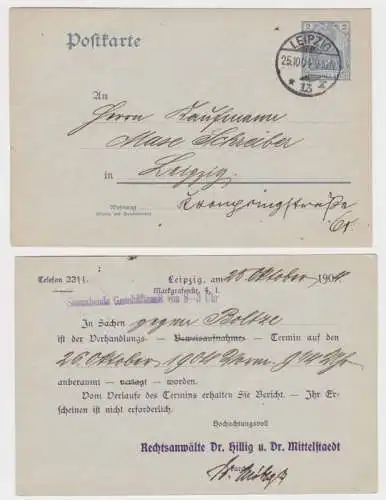 Postkarte
2 2
LEIPZIG
25.10.04
* 13
An
Herrn Kaufmann
Max Schreiber
in Leipzig
Kronprinzstraße
Wohnung
Telefon 2211.
Leipzig, am 25. Oktober 1904.
Markgrafenstr. 4, I.
Sonnabends Geschäftszeit von 8–3 Uhr
In Sachen gegen Boltze
ist der Verhandlungs - Beweisaufnahme - Termin auf den
26. Oktober 1904 Vorm. 9 Uhr
anberaumt - verlegt - worden.
Vom Verlaufe des Termins erhalten Sie Bericht. — Ihr Er-
scheinen ist nicht erforderlich.
Hochachtungsvoll
Rechtsanwälte Dr. Hillig u. Dr. Mittelstaedt